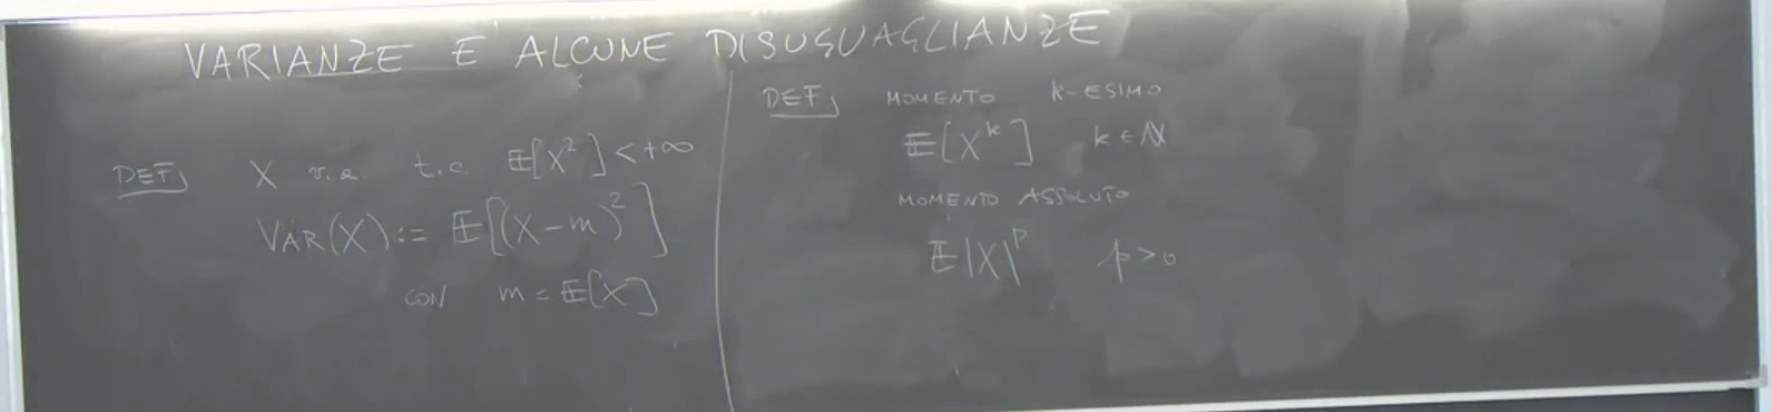 VARIANZE E ALCUNE DISUGUAGLIANZE
DEF, X v.a. t.c. E[X²] < +∞
VAR(X) := E[(X-m)²]
CON m = E[X]
DEF, MOMENTO k-ESIMO
E[X^k] k ∈ N
MOMENTO ASSOLUTO
E|X|^p p>0